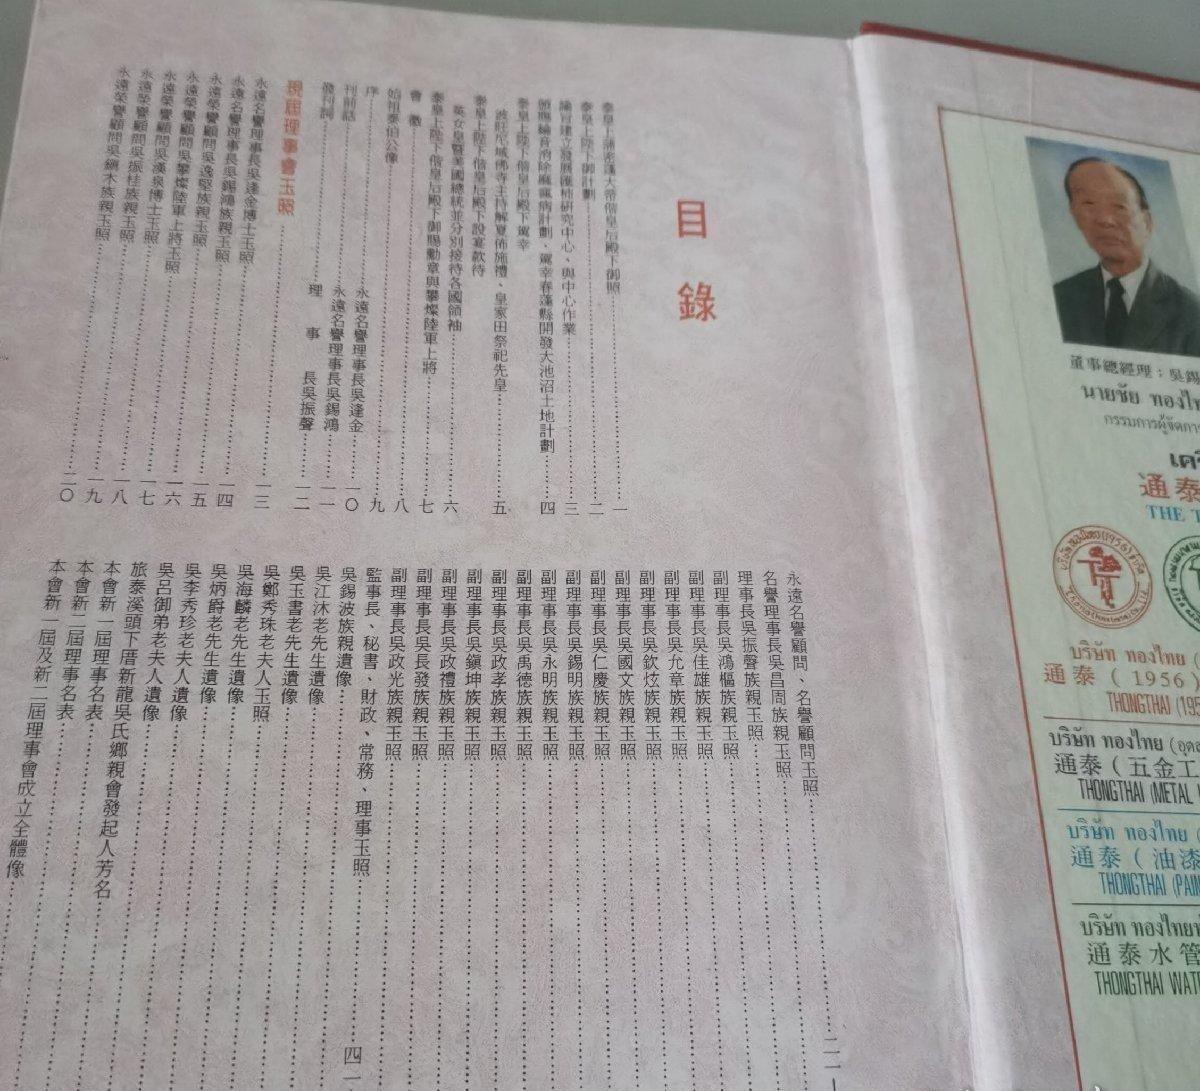 目錄
泰皇上蒲密蓬大帝偕皇后殿下御照……一
泰皇上陛下御計劃……二
諭旨建立發展灑柿研究中心、與中心作業……三
頒應綸音消除痲瘋病計劃、駕幸春蓬縣開發大池沼土地計劃……四
泰皇上陛下偕皇后殿下駕幸
波莊府城佛寺主持解夏佈施禮、皇家田祭祀先皇……五
泰皇上陛下偕皇后殿下設宴款待
英女皇暨美國總統並分別接待各國領袖……六
泰皇上陛下偕皇后殿下御賜勳章與攀燦陸軍上將……七
會徽……八
始祖泰伯公像……九
序……永遠名譽理事長吳逢金……一〇
刊前話……永遠名譽理事長吳錫鴻……一一
發刊詞……理事長吳振聲……一二
現屆理事會玉照
永遠名譽理事長吳逢金博士玉照……一三
永遠名譽理事長吳錫鴻族親玉照……一四
永遠榮譽顧問吳逸堅族親玉照……一五
永遠榮譽顧問吳攀燦陸軍上將玉照……一六
永遠榮譽顧問吳漢泉博士玉照……一七
永遠榮譽顧問吳振桂族親玉照……一八
永遠榮譽顧問吳鎭木族親玉照……一九
二〇
永遠名譽顧問、名譽顧問玉照……二一
名譽理事長吳昌周族親玉照
理事長吳振聲族親玉照
副理事長吳鴻樞族親玉照
副理事長吳佳雄族親玉照
副理事長吳允章族親玉照
副理事長吳欽炫族親玉照
副理事長吳國文族親玉照
副理事長吳仁慶族親玉照
副理事長吳錫明族親玉照
副理事長吳永明族親玉照
副理事長吳禹德族親玉照
副理事長吳政孝族親玉照
副理事長吳鎭坤族親玉照
副理事長吳政禮族親玉照
副理事長吳長發族親玉照
副理事長吳政光族親玉照
監事長、秘書、財政、常務、理事玉照
吳錫波族親遺像……四一
吳江沐老先生遺像
吳玉書老先生遺像
吳鄭秀珠老夫人玉照
吳海麟老先生遺像
吳炳爵老先生遺像
吳李秀珍老夫人遺像
吳呂御弟老夫人遺像
旅泰溪頭下厝新龍吳氏鄉親會發起人芳名
本會新一屆理事名表
本會新二屆理事名表
本會新一屆及新二屆理事會成立全體像
董事總經理：吳錫
นายชัย ทองไท
กรรมการผู้จัดการ
เคร
通泰
THE T
บริษัท ทองไทย (
通泰 (1956)
THONGTHAI (195
บริษัท ทองไทย (อุตส
通泰（五金工
THONGTHAI (METAL
บริษัท ทองไทย (
通泰（油漆
THONGTHAI (PAIN
บริษัท ทองไทยท
通泰水管
THONGTHAI WAT